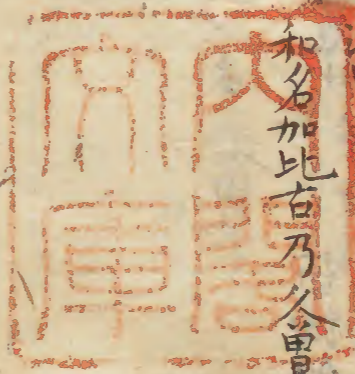 和名加比古乃久曽
内閣
文庫